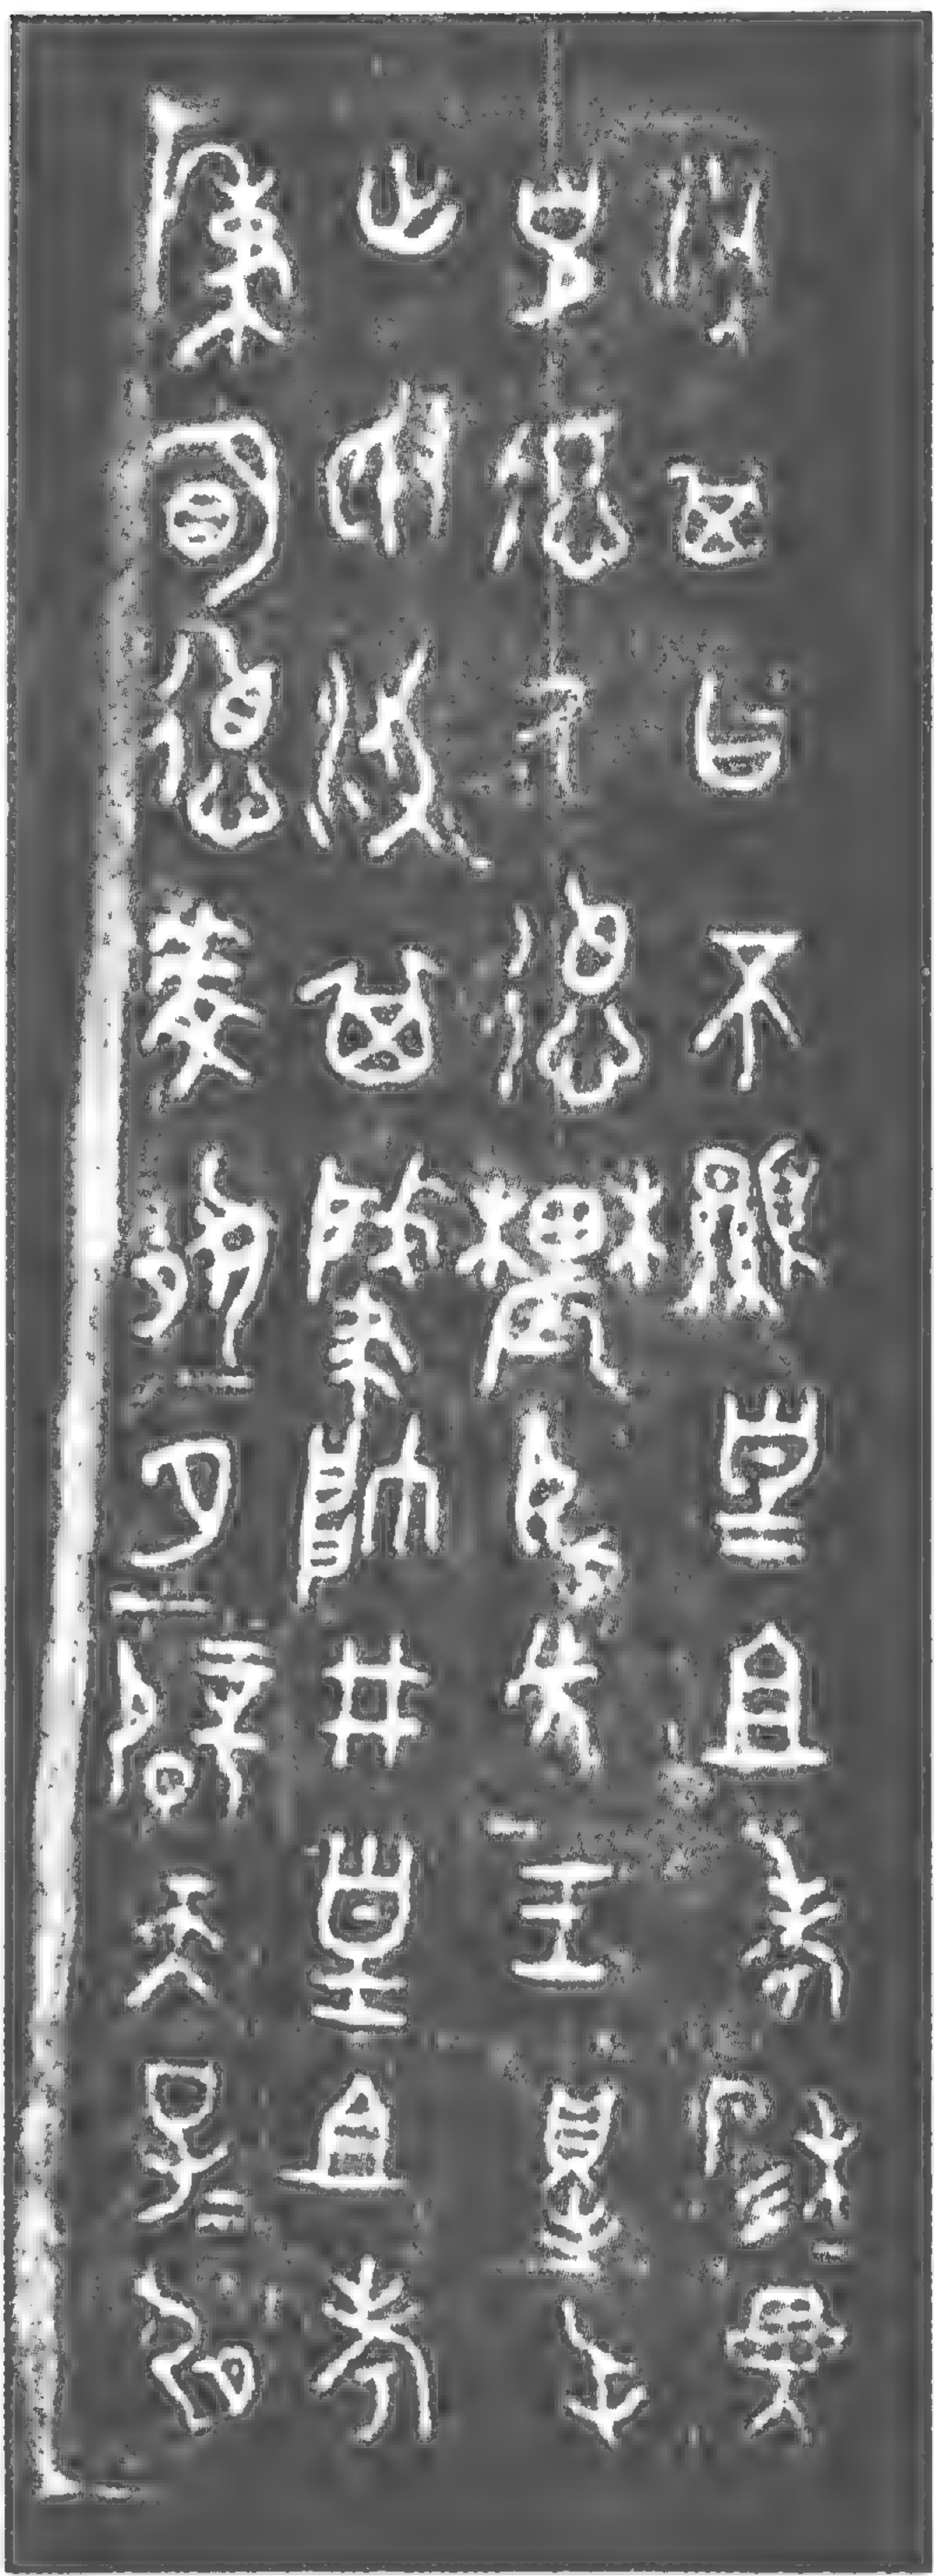 汈其曰不顯皇且考穆=異
=克悊氒德農臣先王得屯
亡敃汈其肇帥井皇且考
秉明德虔夙夕辟天子